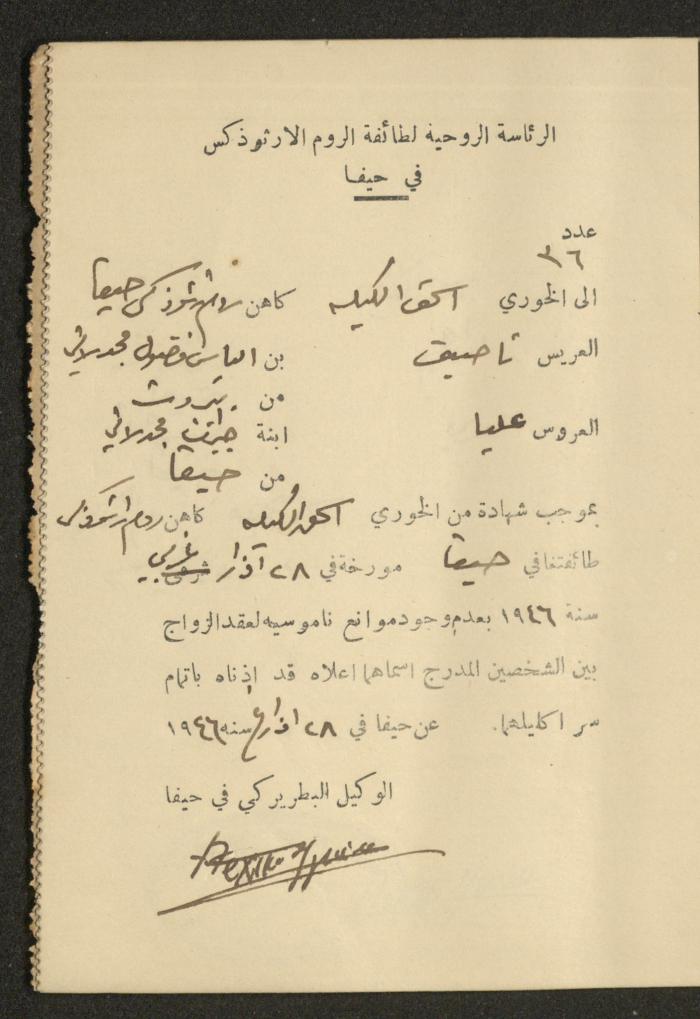 الرئاسة الروحية لطائفة الروم الارثوذكس
في حيفا
عدد
٣٦
الى الخوري اسحق الكيله كاهن روم ارثوذكس حيفا
العريس بن الياس مجدلاني
من بيروت
العروس عليا ابنة مجدلاني
من حيفا
بموجب شهادة من الخوري اسحق الكيله كاهن روم ارثوذكس
طائفتنا في حيفا مورخة في ٢٨ آذار شرقي غربي
سنة ١٩٤٦ بعدم وجود موانع ناموسيه لعقد الزواج
بين الشخصين المدرج اسماهما اعلاه قد اذناه باتمام
سر اكليلهما. عن حيفا في ٢٨ اذار غ سنه ١٩٤٦
الوكيل البطريركي في حيفا